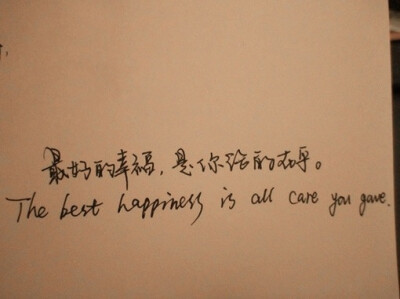 最好的幸福，是你给的在乎。
The best happiness is all care you gave.